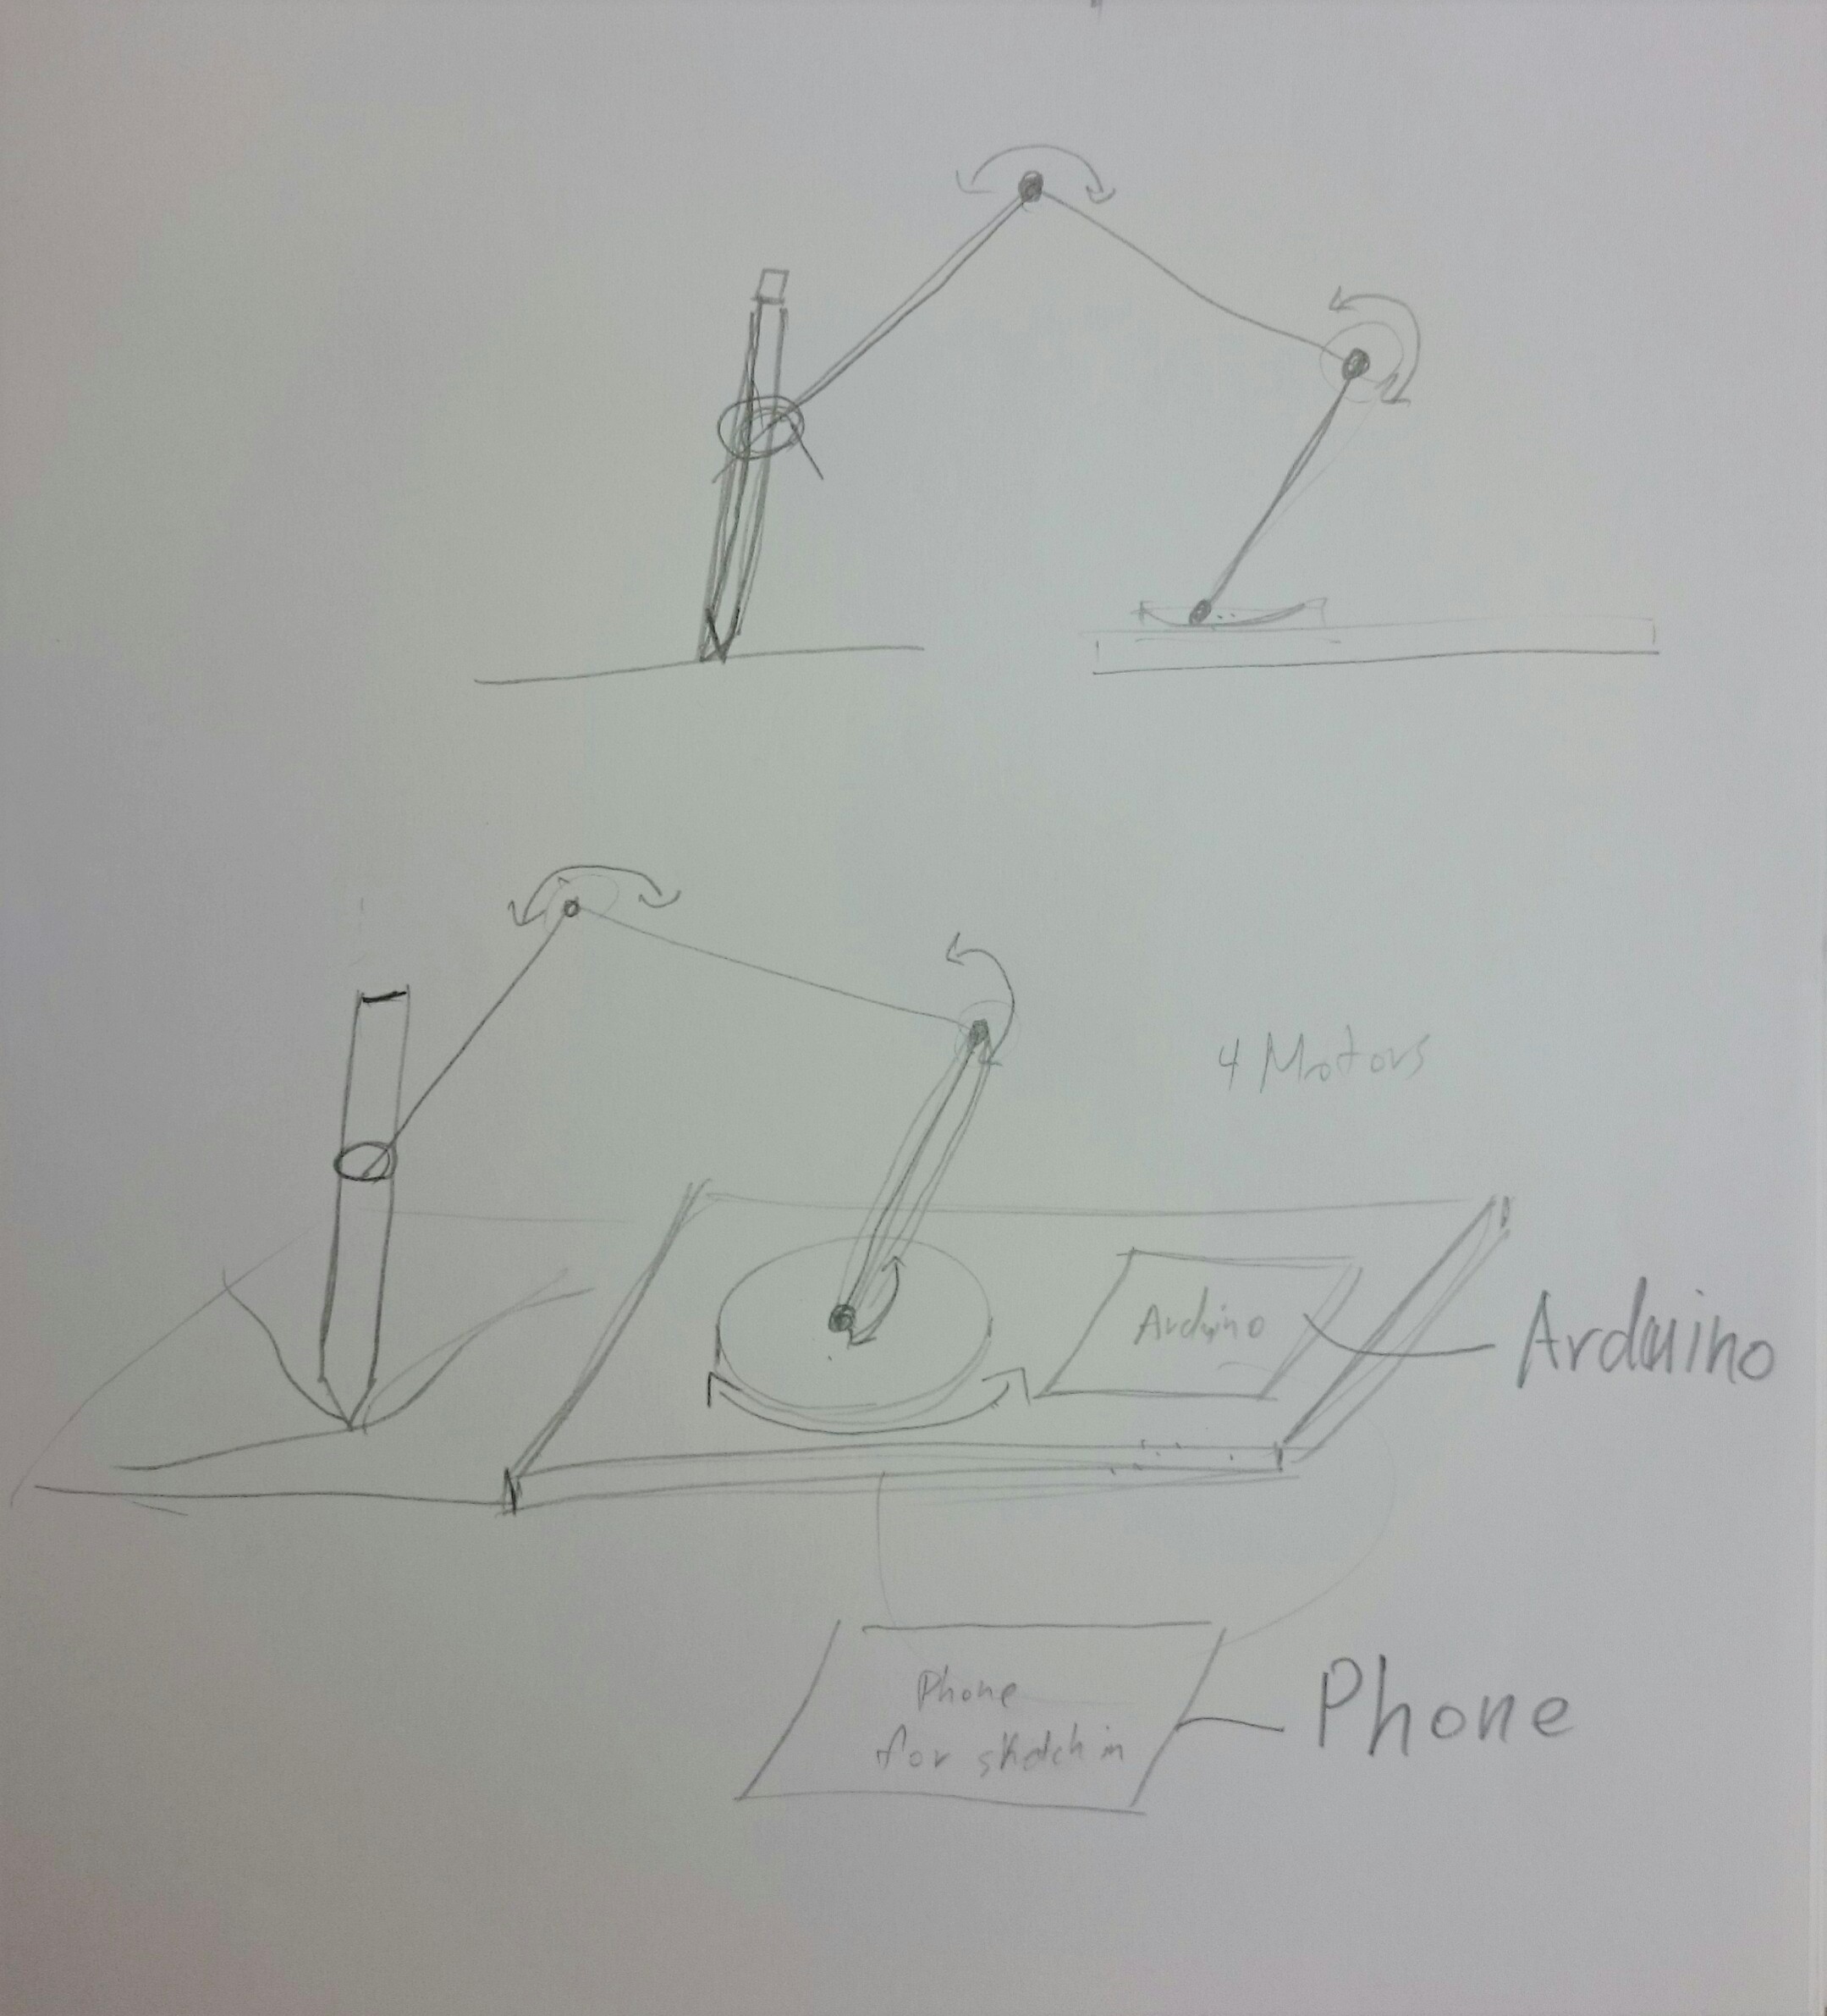 4 Motors
Arduino
Arduino
Phone
for sketch in
Phone